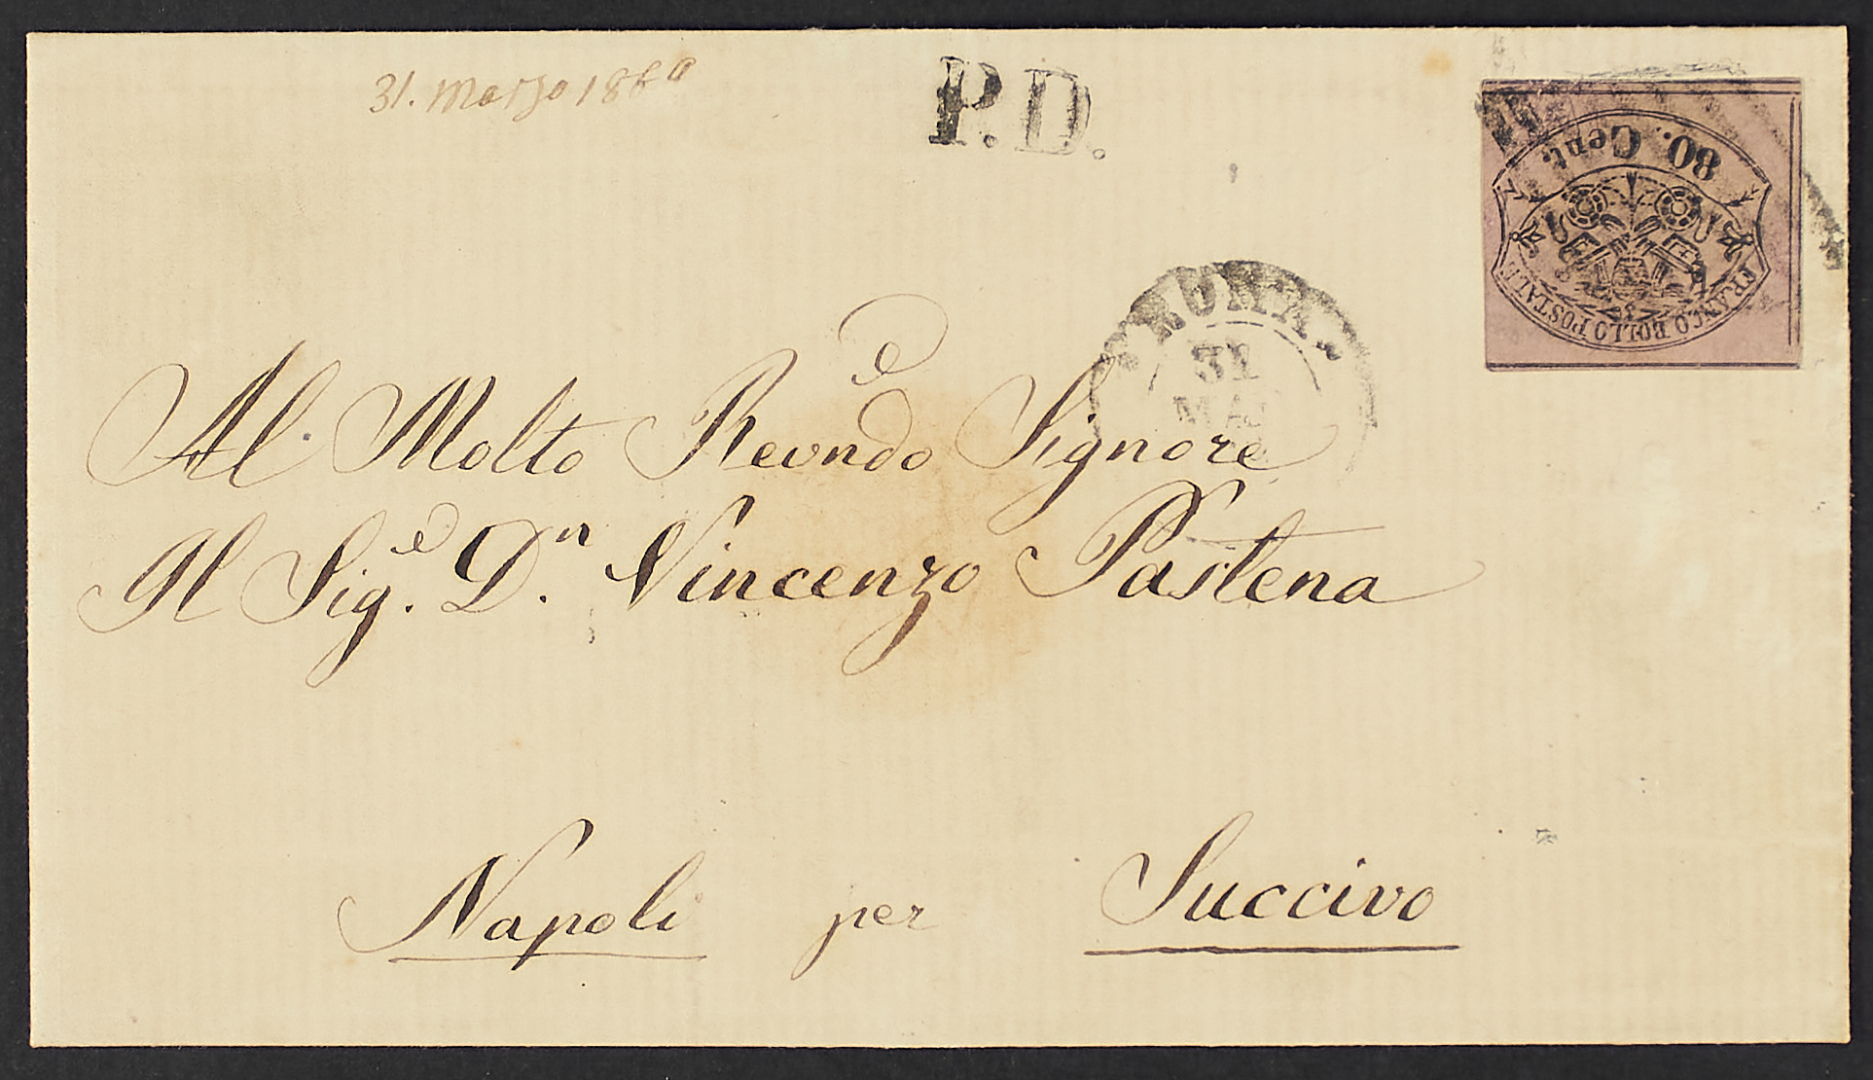 31. Marzo 186
P.D.
80. Cent.
FRANCO BOLLO POSTALE
ROMA
31
MA
Al Molto Revndo Signore
Il Sig.e D.n Vincenzo Pastena
Napoli per Succivo